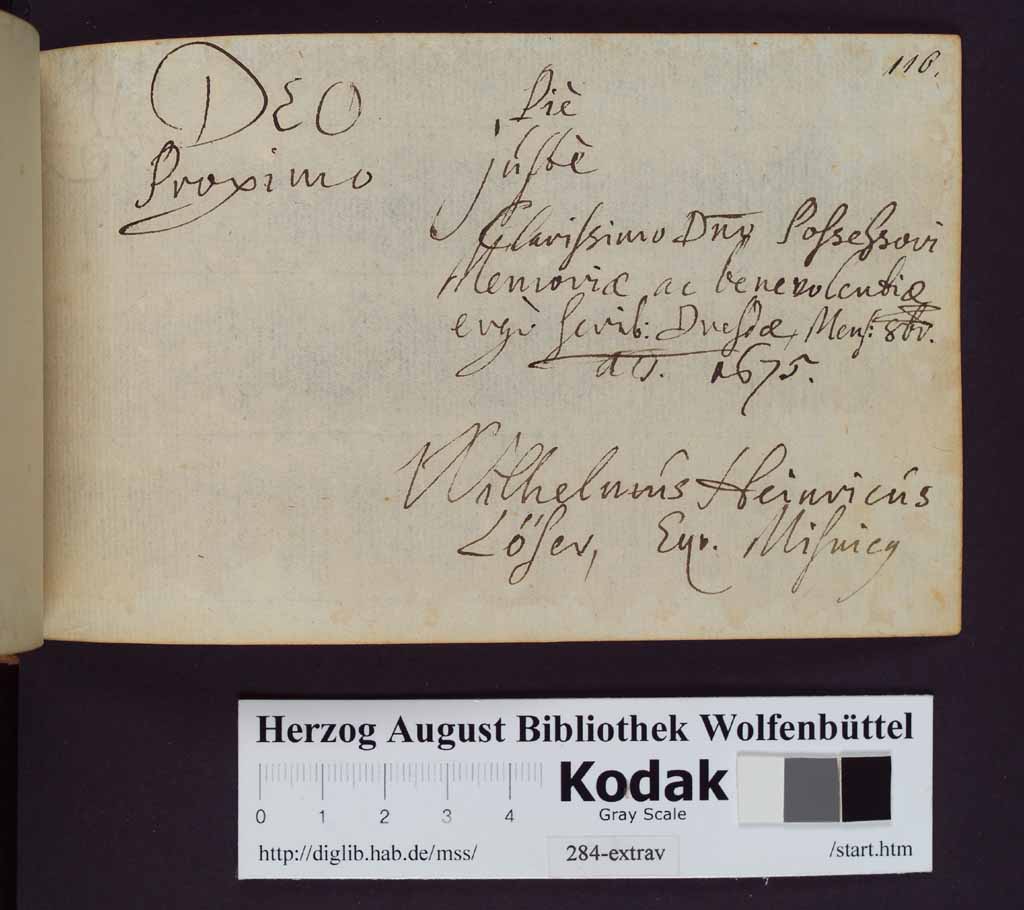 116.
DEO Piè
Proximo justè
Clarissimo Dnō Possessori
Memoriæ ac benevolentiæ
ergò scrib: Dresdæ, Mens: 8br.
aō. 1675.
Wilhelmus Heinricus
Löser, Eqv. Misnicq
Herzog August Bibliothek Wolfenbüttel
Kodak
Gray Scale
0 1 2 3 4
http://diglib.hab.de/mss/ 284-extrav /start.htm